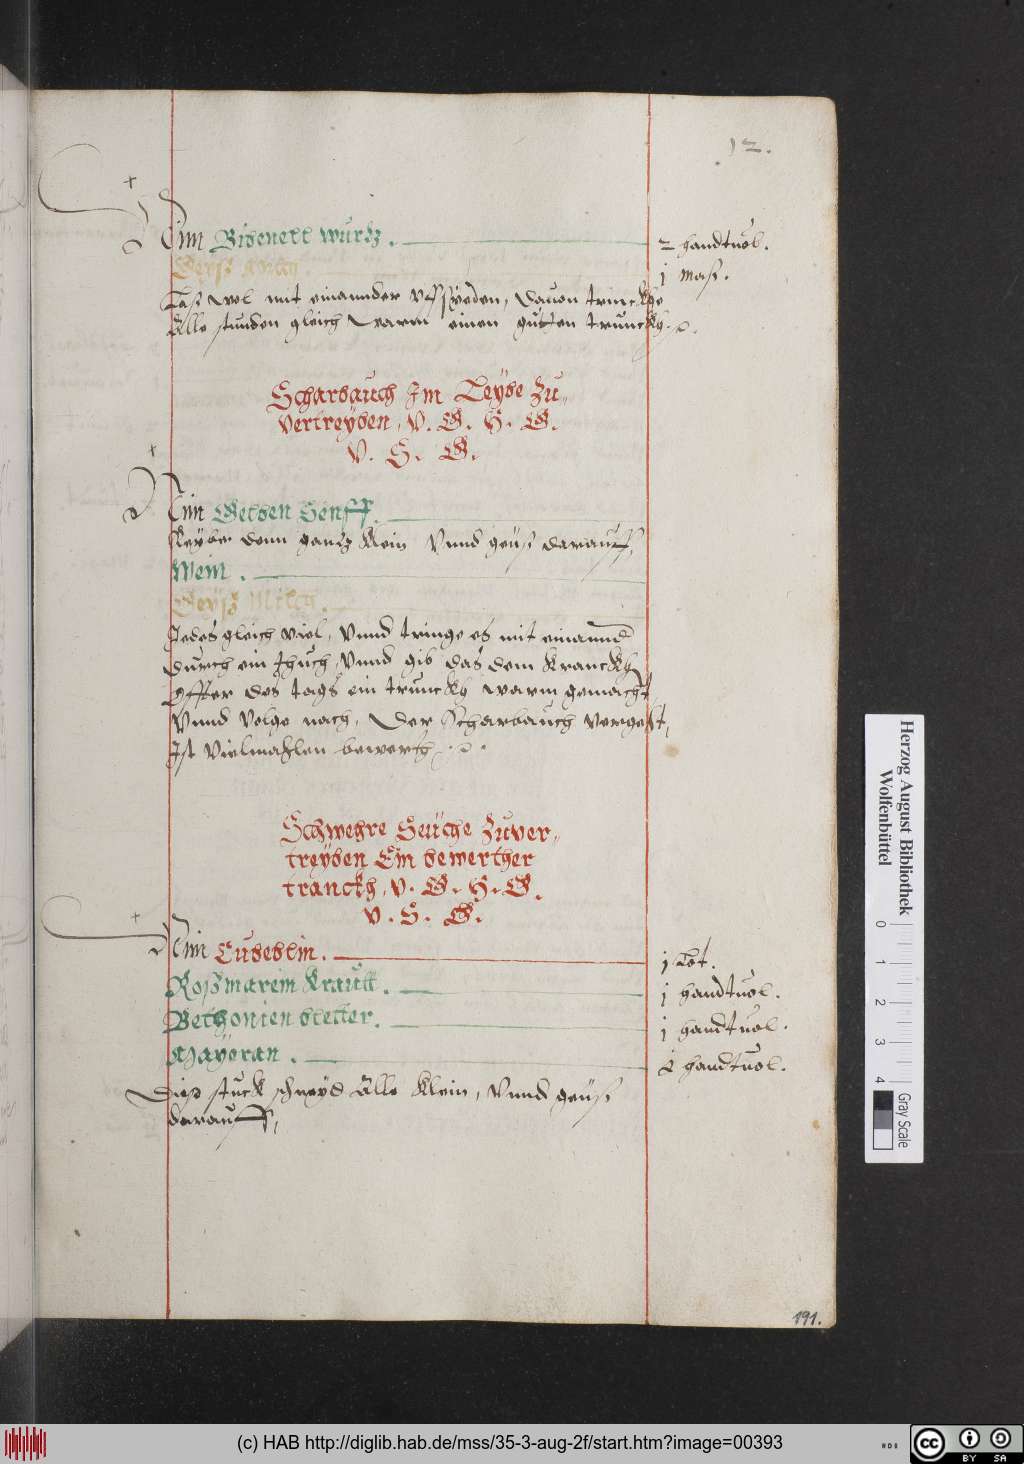 12.
Nim Bibenell wurtz. 2 handtuol.
Geyß Milch. 1 Mas.
Laß wol mit einannder vffsyeden, dauon trinckhe
Alle stunden gleich warm einen gutten trunckh.
Scharbauch Im Leybe Zu„
vertreyben, V. G. H. G.
V. S. G.
Nim Gelben Senff.
Reybe denn gantz klein Vnnd geuß darauff,
Wein.
Geyß Milch.
Jedes gleich viel, Vnnd tringe es mit einannd
durch ein thuch, Vnnd gib das dem Kranckh
Offter des tags ein trunckh warm gemacht,
Vnnd Volge nach, Der Scharbauch vergeht,
Ist Vielmahlen bewerth.
Schwehre Seuche Zuver„
treyben Ein bewerther
tranckh, V. G. H. G.
V. S. G.
Nim Cubeblin. 1 Lot.
Roßmarein Krautt. 1 handtuol.
Bethonien bletter. 1 handtuol.
Mayoran. 1 handtuol.
Dieß stuck schneyd Alle Klein, Vnnd geuß
darauff,
191.
Herzog August Bibliothek
Wolfenbüttel
0 1 2 3 4
Gray Scale
(c) HAB http://diglib.hab.de/mss/35-3-aug-2f/start.htm?image=00393
cc BY SA